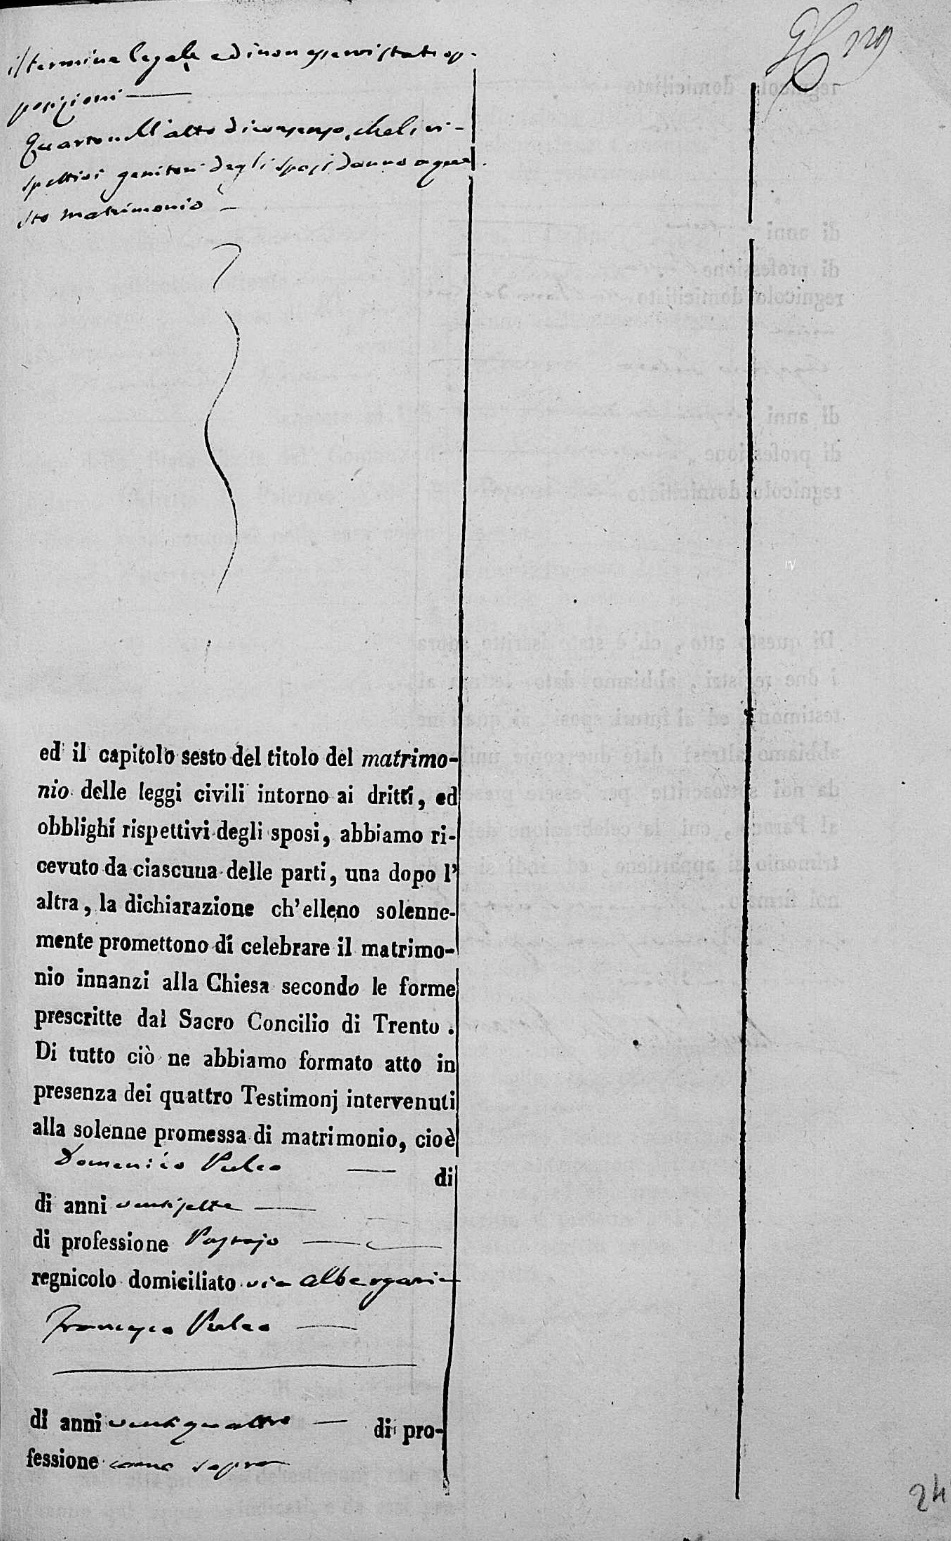 il termine legale ed in non esservi stati op-
posizioni
Quarto nell'atto di consenso, che li ri-
spettivi genitori degli sposi danno a que-
sto matrimonio
ed il capitolo sesto del titolo del matrimo-
nio delle leggi civili intorno ai dritti, ed
obblighi rispettivi degli sposi, abbiamo ri-
cevuto da ciascuna delle parti, una dopo l'
altra, la dichiarazione ch'elleno solenne-
mente promettono di celebrare il matrimo-
nio innanzi alla Chiesa secondo le forme
prescritte dal Sacro Concilio di Trento.
Di tutto ciò ne abbiamo formato atto in
presenza dei quattro Testimonj intervenuti
alla solenne promessa di matrimonio, cioè
Domenico Puleo di
di anni ventisette
di professione
regnicolo domiciliato via Albergaria
Francesco Puleo
di anni ventiquattro di pro-
fessione come sopra
24